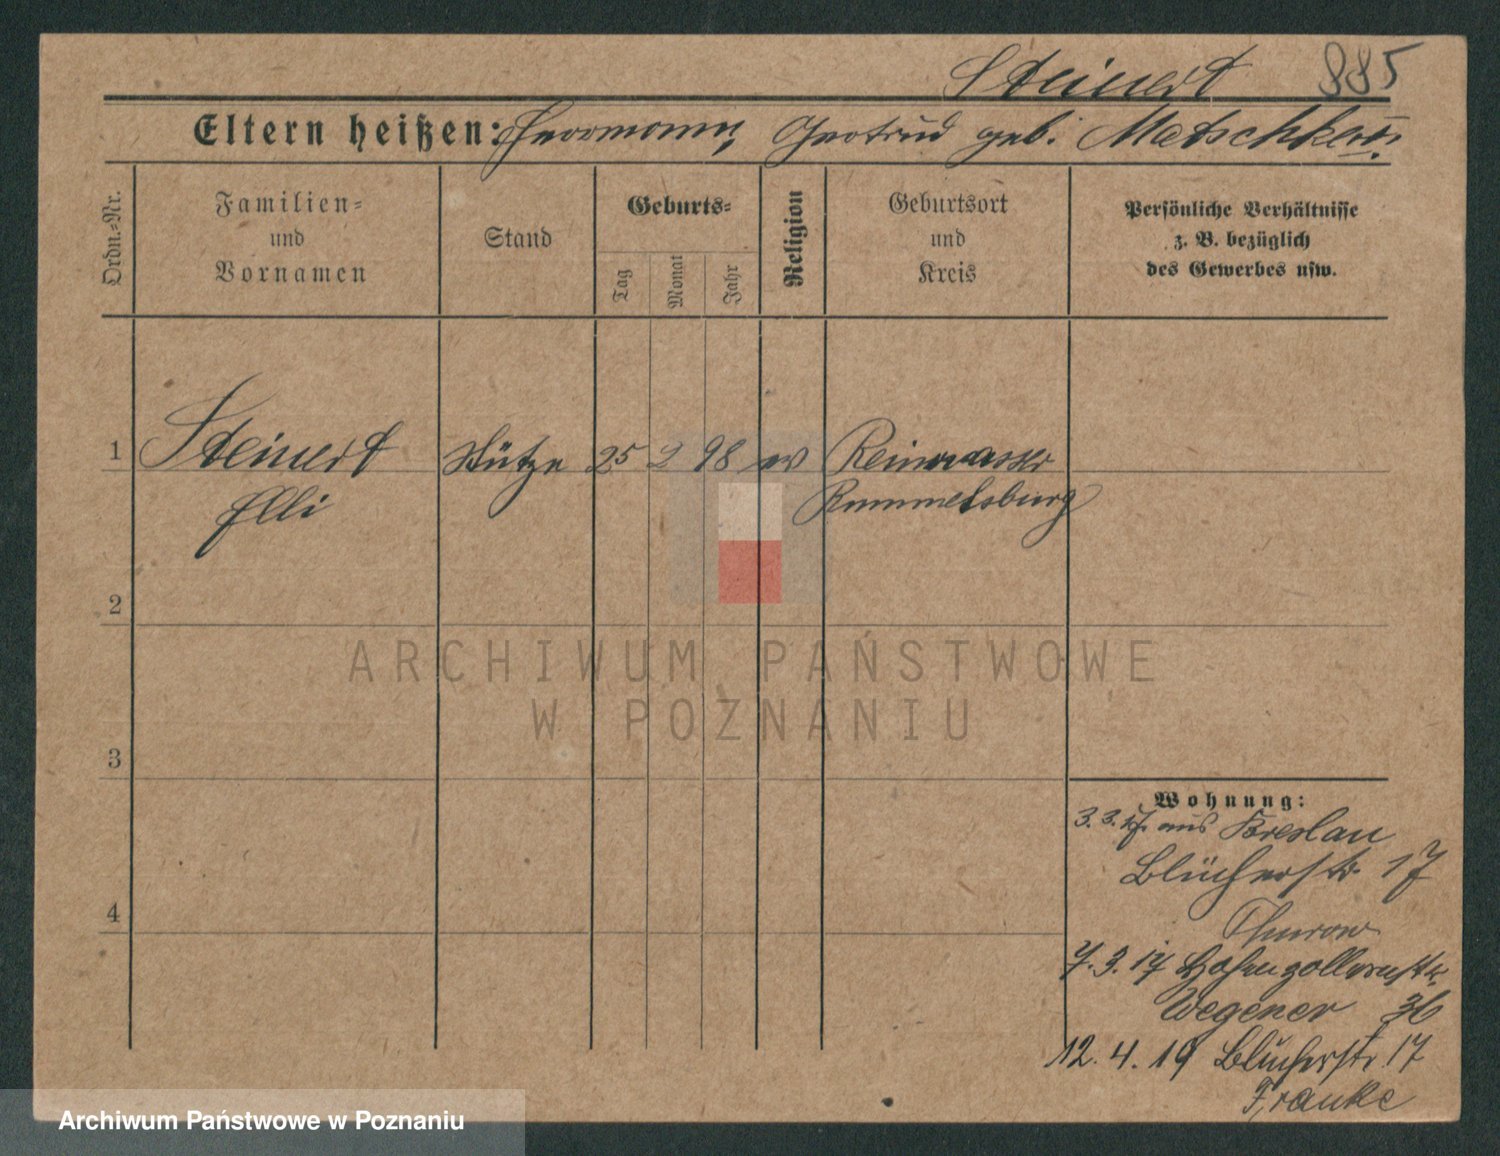 Steinert 885
Eltern heißen: Hermann, Gertrud geb.
Ordn.-Nr.
Familien-
und
Vornamen
Stand
Geburts-
Tag
Monat
Jahr
Religion
Geburtsort
und
Kreis
Persönliche Verhältnisse
z. B. bezüglich
des Gewerbes usw.
1 Steinert Stütze 25 2 98 ev Reinwasser
Elli Rummelsburg
2
3
4
ARCHIWUM PAŃSTWOWE
W POZNANIU
Wohnung:
3. 3. 17. aus Breslau
Blücherstr. 17
Thurow
7. 3. 17 Hohenzollernstr.
Wegener 36
12. 4. 19 Blücherstr. 17
Franke
Archiwum Państwowe w Poznaniu